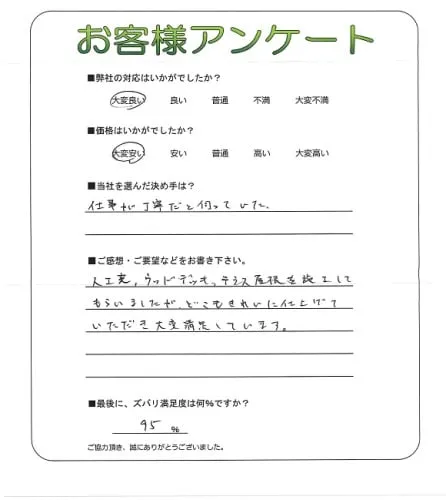 お客様アンケート
■弊社の対応はいかがでしたか？
大変良い 良い 普通 不満 大変不満
■価格はいかがでしたか？
大変安い 安い 普通 高い 大変高い
■当社を選んだ決め手は？
仕事が丁寧だと伺っていた。
■ご感想・ご要望などをお書き下さい。
人工芝、ウッドデッキ、テラス屋根を施工して
もらいましたが、どこもきれいに仕上げて
いただき大変満足しています。
■最後に、ズバリ満足度は何%ですか？
95 %
ご協力頂き、誠にありがとうございました。